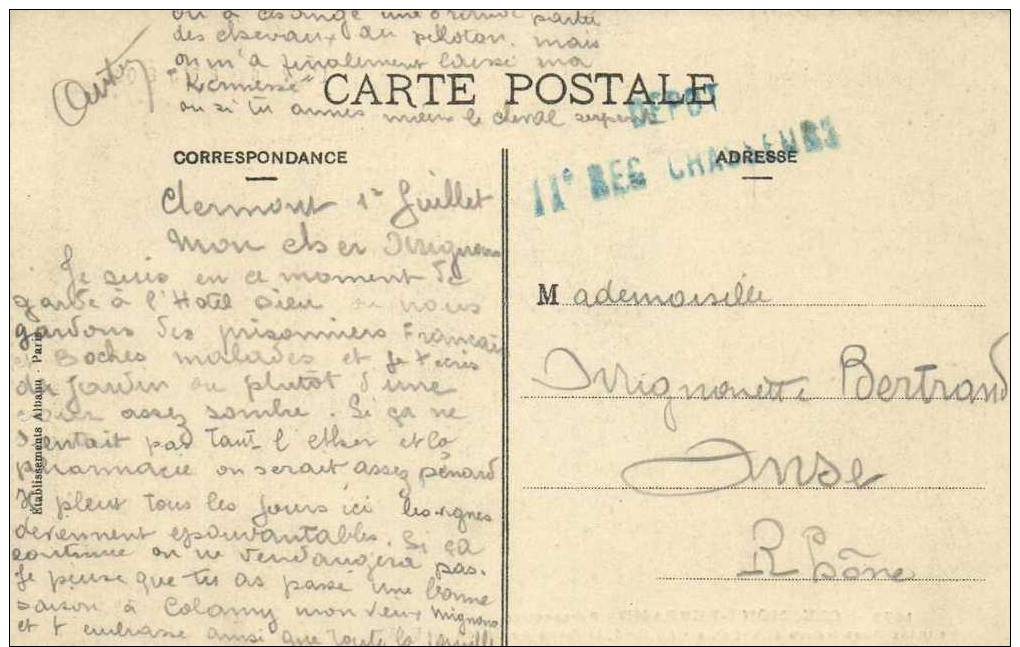 on a changé une grande partie
des chevaux du peloton. mais
on m'a finalement laissé ma
"Kermesse"
ou si tu aimes mieux le cheval serpent
CARTE POSTALE
DEPOT
11e REG CHASSEURS
CORRESPONDANCE
ADRESSE
Clermont 1er Juillet
Mon cher Mignon
Je suis en ce moment de
garde à l'Hotel Dieu où nous
gardons des prisonniers Francais
et Boches malades et je t'ecris
du jardin ou plutôt d'une
cour assez sombre. Si ça ne
sentait pas tant l'ether et la
pharmacie on serait assez pénard
Il pleut tous les jours ici les vignes
deviennent epouvantables. Si ça
continue on ne vendangera pas.
Je pense que tu as passé une bonne
saison à mon vieux Mignon
et t'embrasse ainsi que toute la famille
Etablissements Albanu - Paris
Mademoiselle
Mignonette Bertrand
Anse
Rhône